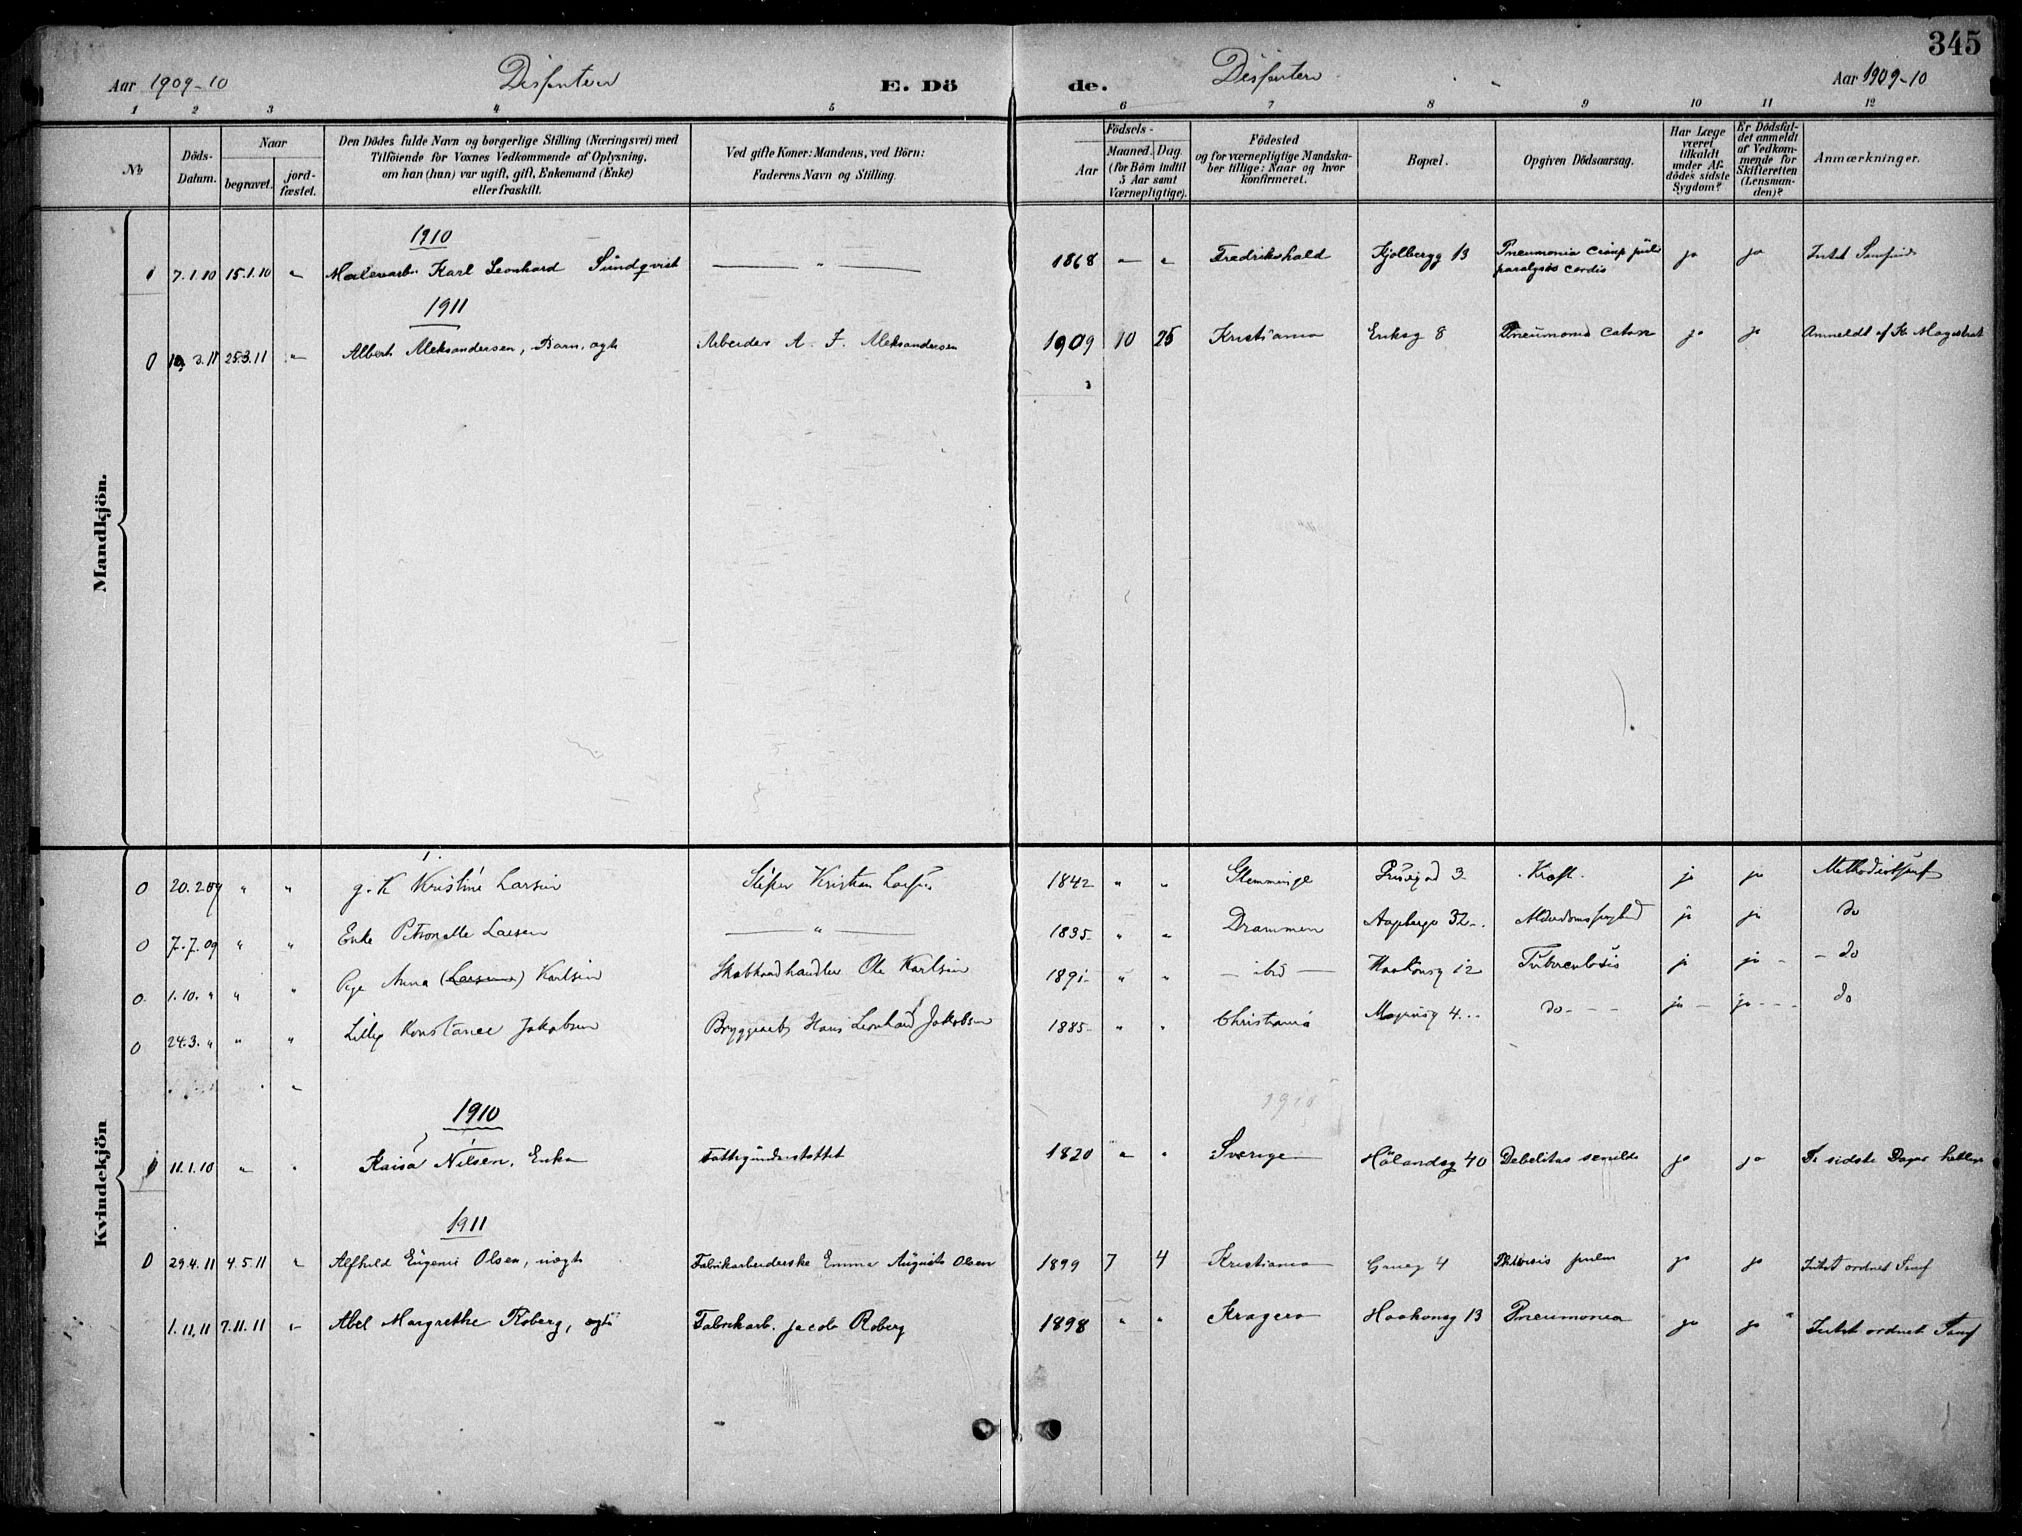 345
Aar 1909-10 Disſenter E. Dö de. Disſenter Aar 1909-10
1 2 3 4 5 6 7 8 9 10 11 12
№ Döds-Datum. Naar begravet. jord-fæstet. Den Dödes fulde Navn og borgerlige Stilling (Næringsvei) med Tilföiende for Voxnes Vedkommende af Oplysning, om han (hun) var ugift, gift, Enkemand (Enke) eller fraskilt. Ved gifte Koner: Mandens, ved Börn: Faderens Navn og Stilling. Födsels- Aar Maaned. Dag. (for Börn indtil 5 Aar samt Værnepligtige). Födested og for værnepligtige Mandskaber tillige: Naar og hvor konfirmeret. Bopæl. Opgiven Dödsaarsag. Har Læge været tilkaldt under Afdödes sidste Sygdom? Er Dödsfaldet anmeldt af Vedkommende for Skifteretten (Lensmanden)? Anmærkninger.
Mandkjön.
1910
7.1.10 15.1.10 " Malerarb. Karl Leonhard Sundqvist — " — 1868 — " Fredrikshald Kjølbergg 13 Pneumonia paralysis cordis ja ja Intet Samfund
1911
0 3.11 25.3.11 " Albert Aleksandersen, Barn, ægte Arbeider A. F. Aleksandersen 1909 10 25 Kristiania Eriksg 8 Pneumonia catarr ja ja Anmeldt af Kr Magistrat
Kvindekjön
0 20.2.09 " " g. K Kristine Larsen Kristian 1842 " " Glemminge 3 Kræft. ja ja Methodistsamf
0 7.7.09 " " Enke Petronelle Larsen — " — 1835 " " Drammen 32 ja ja do
0 1.10. " " " Pige Anna (Larsen) Karlsen Ole Karlsen 1891 " " — ibid — Haakonsg 12 Tuberculosis ja ja - do
0 24.3. " " " Lilly Konstance Jakobsen Bryggearb Hans Leonhard Jakobsen 1885 " " Christiania 4 do ja ja do
1910
11.1.10 " " Kaisa Nilsen, Enke Fattigunderstøttet 1820 " " Sverige Hølandsg 40 Debelitas senilde ja ja De sidste Dages hellige
1911
0 29.4.11 4.5.11 " Alfhild Eugenie Olsen, uægte Fabrikarbeiderske Emma Augusta Olsen 1899 7 4 Kristiania Grueg 4 Phtisis pulm ja ja Intet ordnet Samf
1.11.11 7.11.11 " Abel Margrethe Roberg, ægte Fabrikarb. Jacob Roberg 1898 " " Kragerø Haakonsg 13 Pneumonia ja ja Intet ordnet Samf